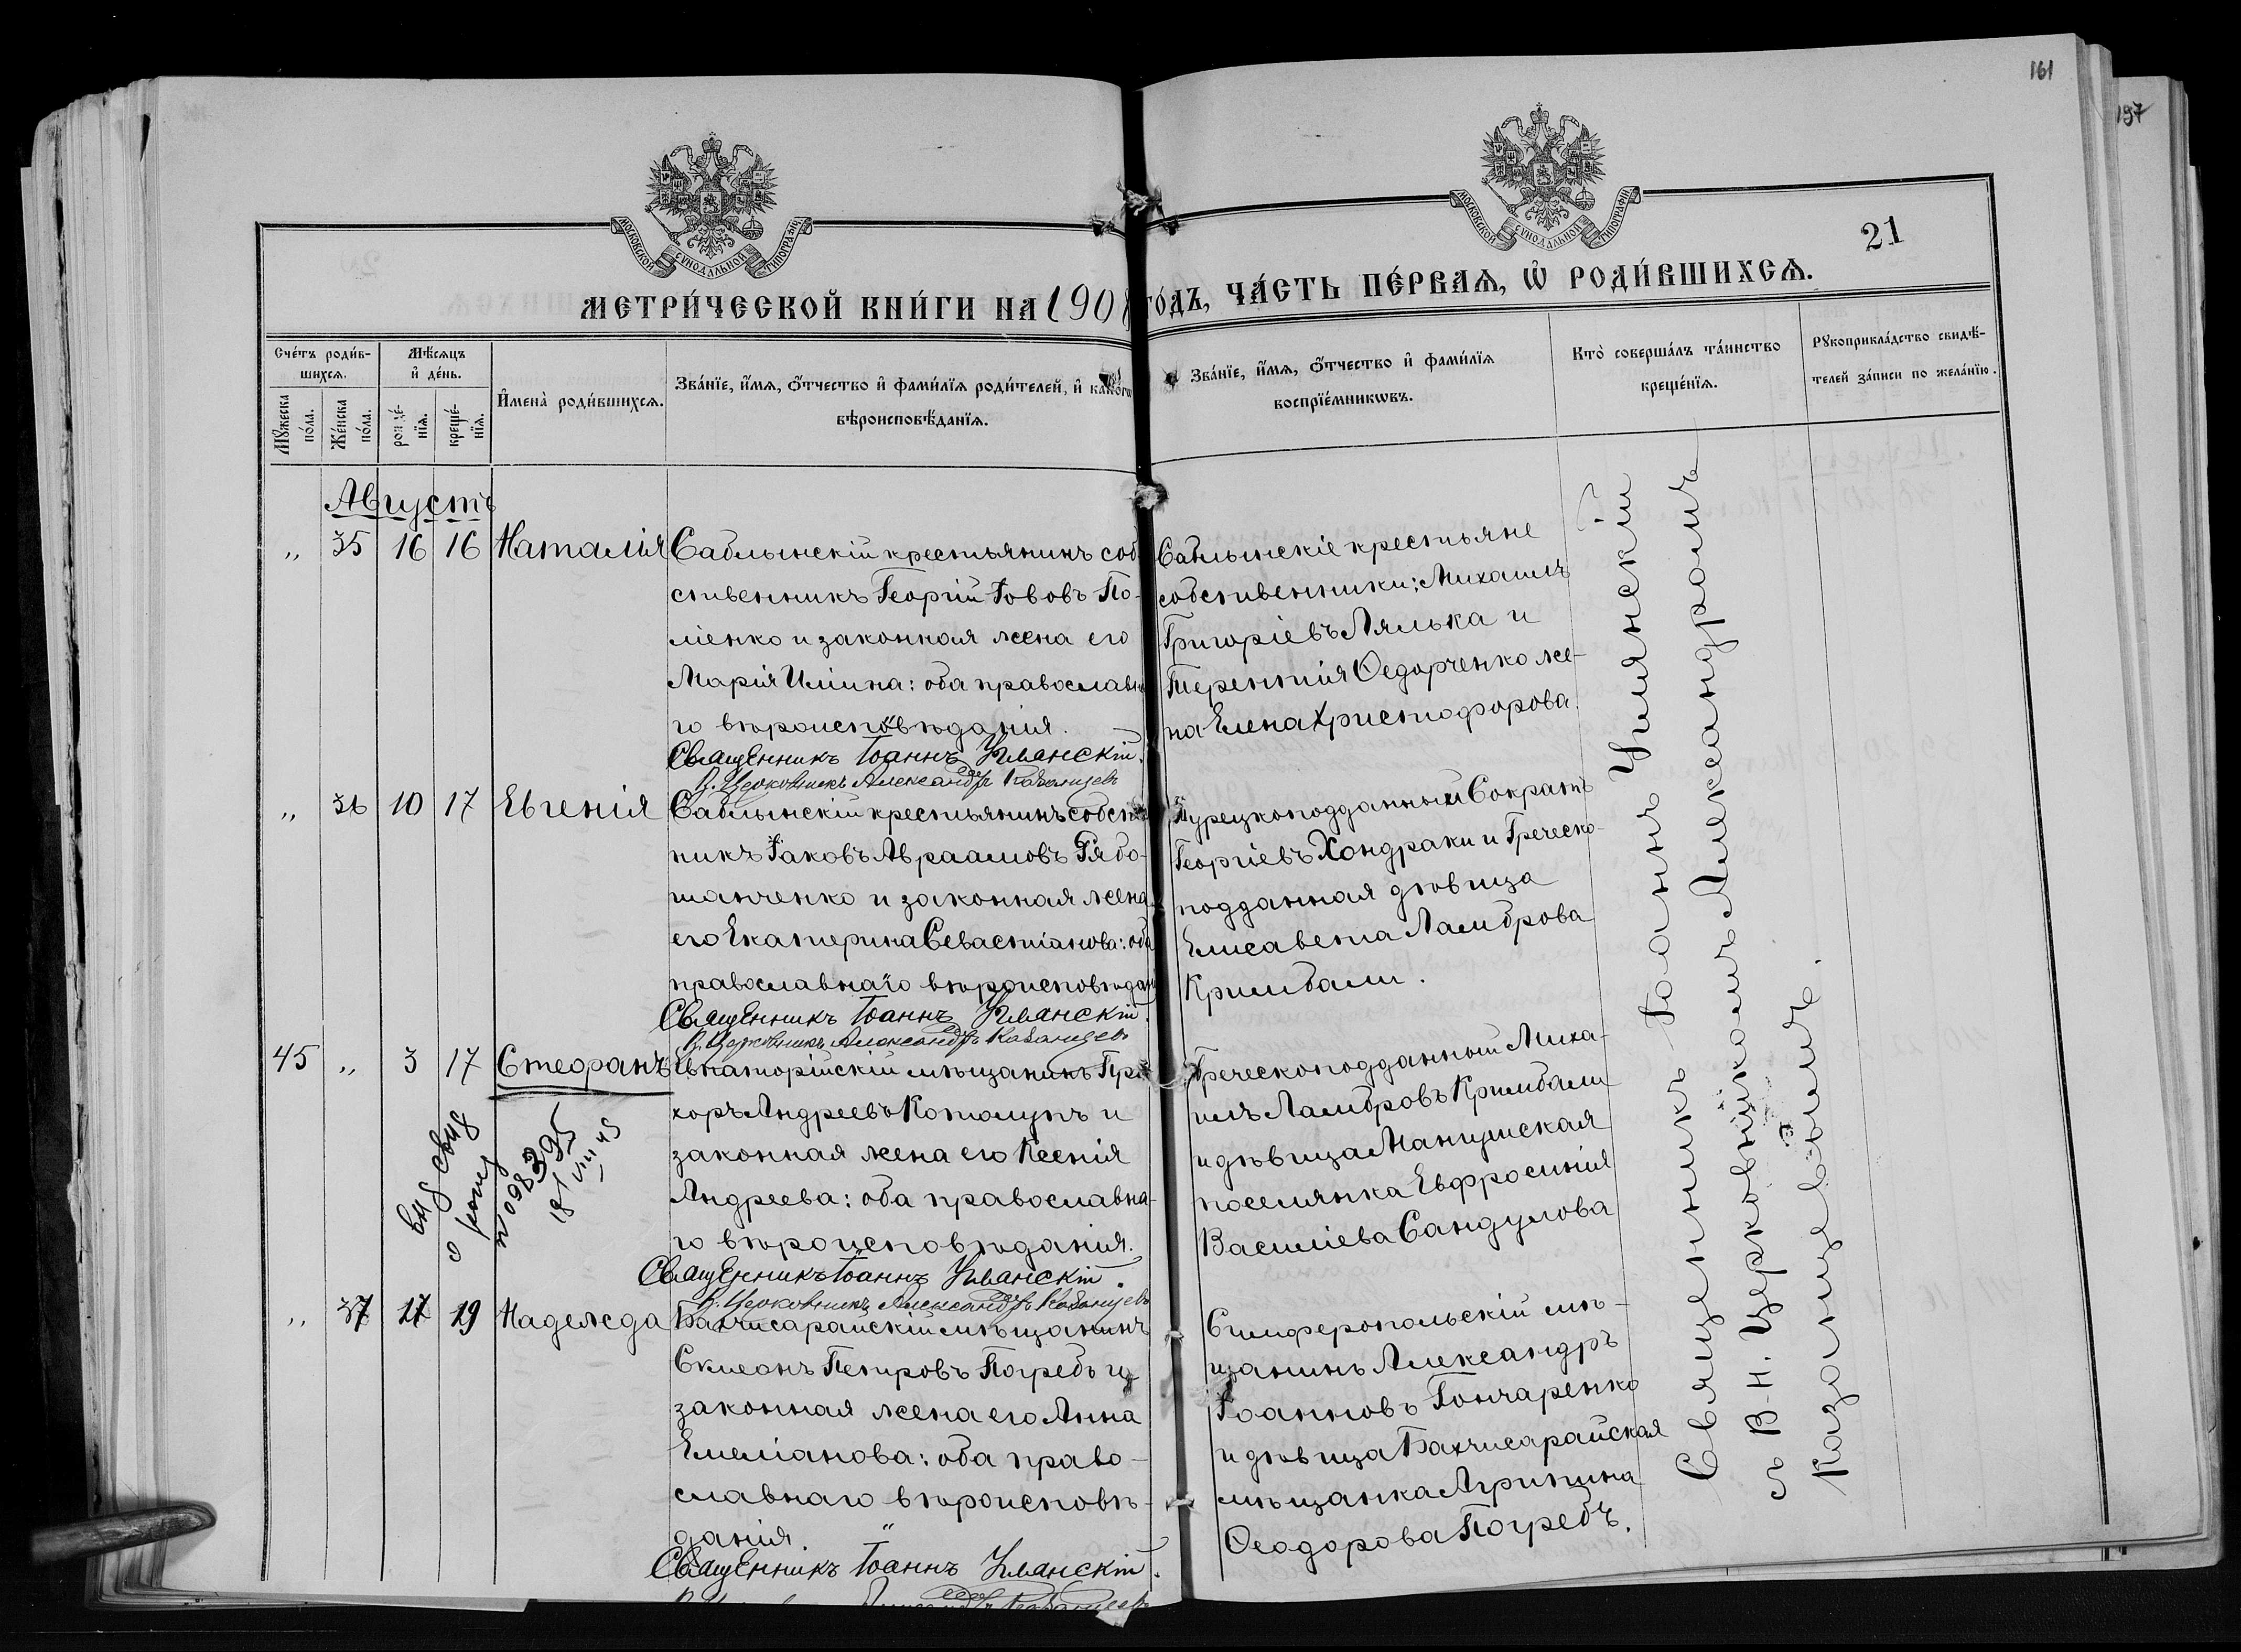 161
197
МОСКОВСКОЙ СѴНОДАЛЬНОЙ ТИПОГРАФІИ
МОСКОВСКОЙ СѴНОДАЛЬНОЙ ТИПОГРАФІИ
21
МЕТРИ́ЧЕСКОЙ КНИ́ГИ НА 1908
го́дъ, ЧА́СТЬ ПЕ́РВАѦ, Ѡ҆ РОДИ́ВШИХСѦ.
Сче́тъ роди́в-
шихсѧ.
Мꙋ́жеска
по́ла.
Же́нска
по́ла.
Мѣ́сѧцъ
и҆ де́нь.
рожде́-
нїѧ.
креще́-
нїѧ.
И҆мена̀ роди́вшихсѧ.
Зва́нїе, и҆́мѧ, ѻ҆́тчество и҆ фами́лїѧ роди́телей, и҆ како́гѡ
вѣроисповѣ́данїѧ.
Зва́нїе, и҆́мѧ, ѻ҆́тчество и҆ фами́лїѧ
воспрїе́мникѡвъ.
Кто̀ соверша́лъ та́инство
креще́нїѧ.
Рꙋкоприкла́дство свидѣ́-
телей за́писи по жела́нїю.
Августъ
„ 35 16 16 Наталія
Саблынскій крестьянинъ соб
ственникъ Георгій Іововъ По-
ліенко и законная жена его
Марія Иліина: оба православна
го вѣроисповѣданія.
Священникъ Іоаннъ Уманскій.
В. Церковникъ Александръ Казанцевъ
Саблынскіе крестьяне
собственники: Михаилъ
Григоріевъ Лялька и
Терентія Ѳедорченко же-
на Елена Христофорова.
„ 36 10 17 Евгенія
Саблынскій крестьянинъ собст
никъ Іаковъ Авраамовъ Рябо-
шапченко и законная жена
его Екатерина Севастіанова: оба
православнаго вѣроисповѣдан
Священникъ Іоаннъ Уманскій
В. Церковникъ Александръ Казанцевъ
Турецкоподданный Сократъ
Георгіевъ Хондраки и Греческо-
подданная дѣвица
Елисавета Ламброва
Кримбали.
45 „ 3 17 Стефанъ
Евпаторійскій мѣщанинъ Про
хоръ Андреевъ Котолупъ и
законная жена его Ксенія
Андреева: оба православна-
го вѣроисповѣданія.
Священникъ Іоаннъ Уманскій.
В. Церковникъ Александръ Казанцевъ
Греческоподданный Миха-
илъ Ламбровъ Кримбали
и дѣвица Мангушская
поселянка Евфросинія
Василіева Сандулова
„ 37 17 19 Надежда
Бахчисарайскій мѣщанинъ
Симеонъ Петровъ Погребъ и
законная жена его Анна
Емеліанова: оба право-
славнаго вѣроисповѣ-
данія.
Священникъ Іоаннъ Уманскій.
Симферопольскій мѣ-
щанинъ Александръ
Іоанновъ Гончаренко
и дѣвица Бахчисарайская
мѣщанка Агрипина
Ѳеодорова Погребъ.
Священникъ Іоаннъ Уманскій
съ В-Н. Церковникомъ Александромъ
Казанцевымъ.